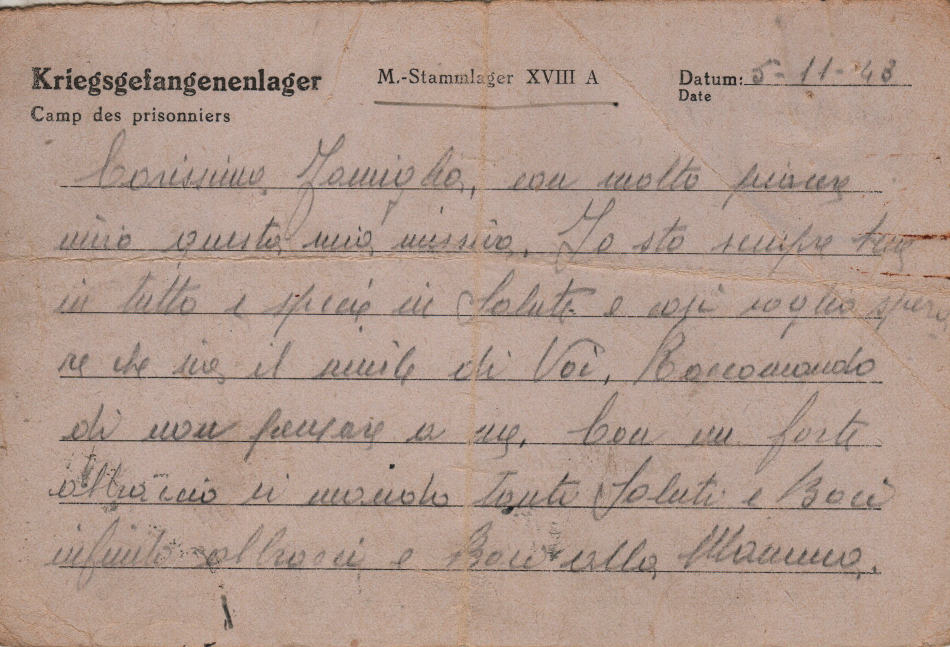 Kriegsgefangenenlager
Camp des prisonniers
M.-Stammlager XVIII A
Datum: 5-11-43
Date
Carissima Famiglia, con molto piacere
invio questa mia missiva. Io sto sempre bene
in tutto e specie in Salute e così voglio spera
re che sia il simile di Voi, Raccomando
di non pensare a me. Con un forte
abbraccio vi mando tanti Saluti e Baci
infinito abbracci e Baci alla Mamma.